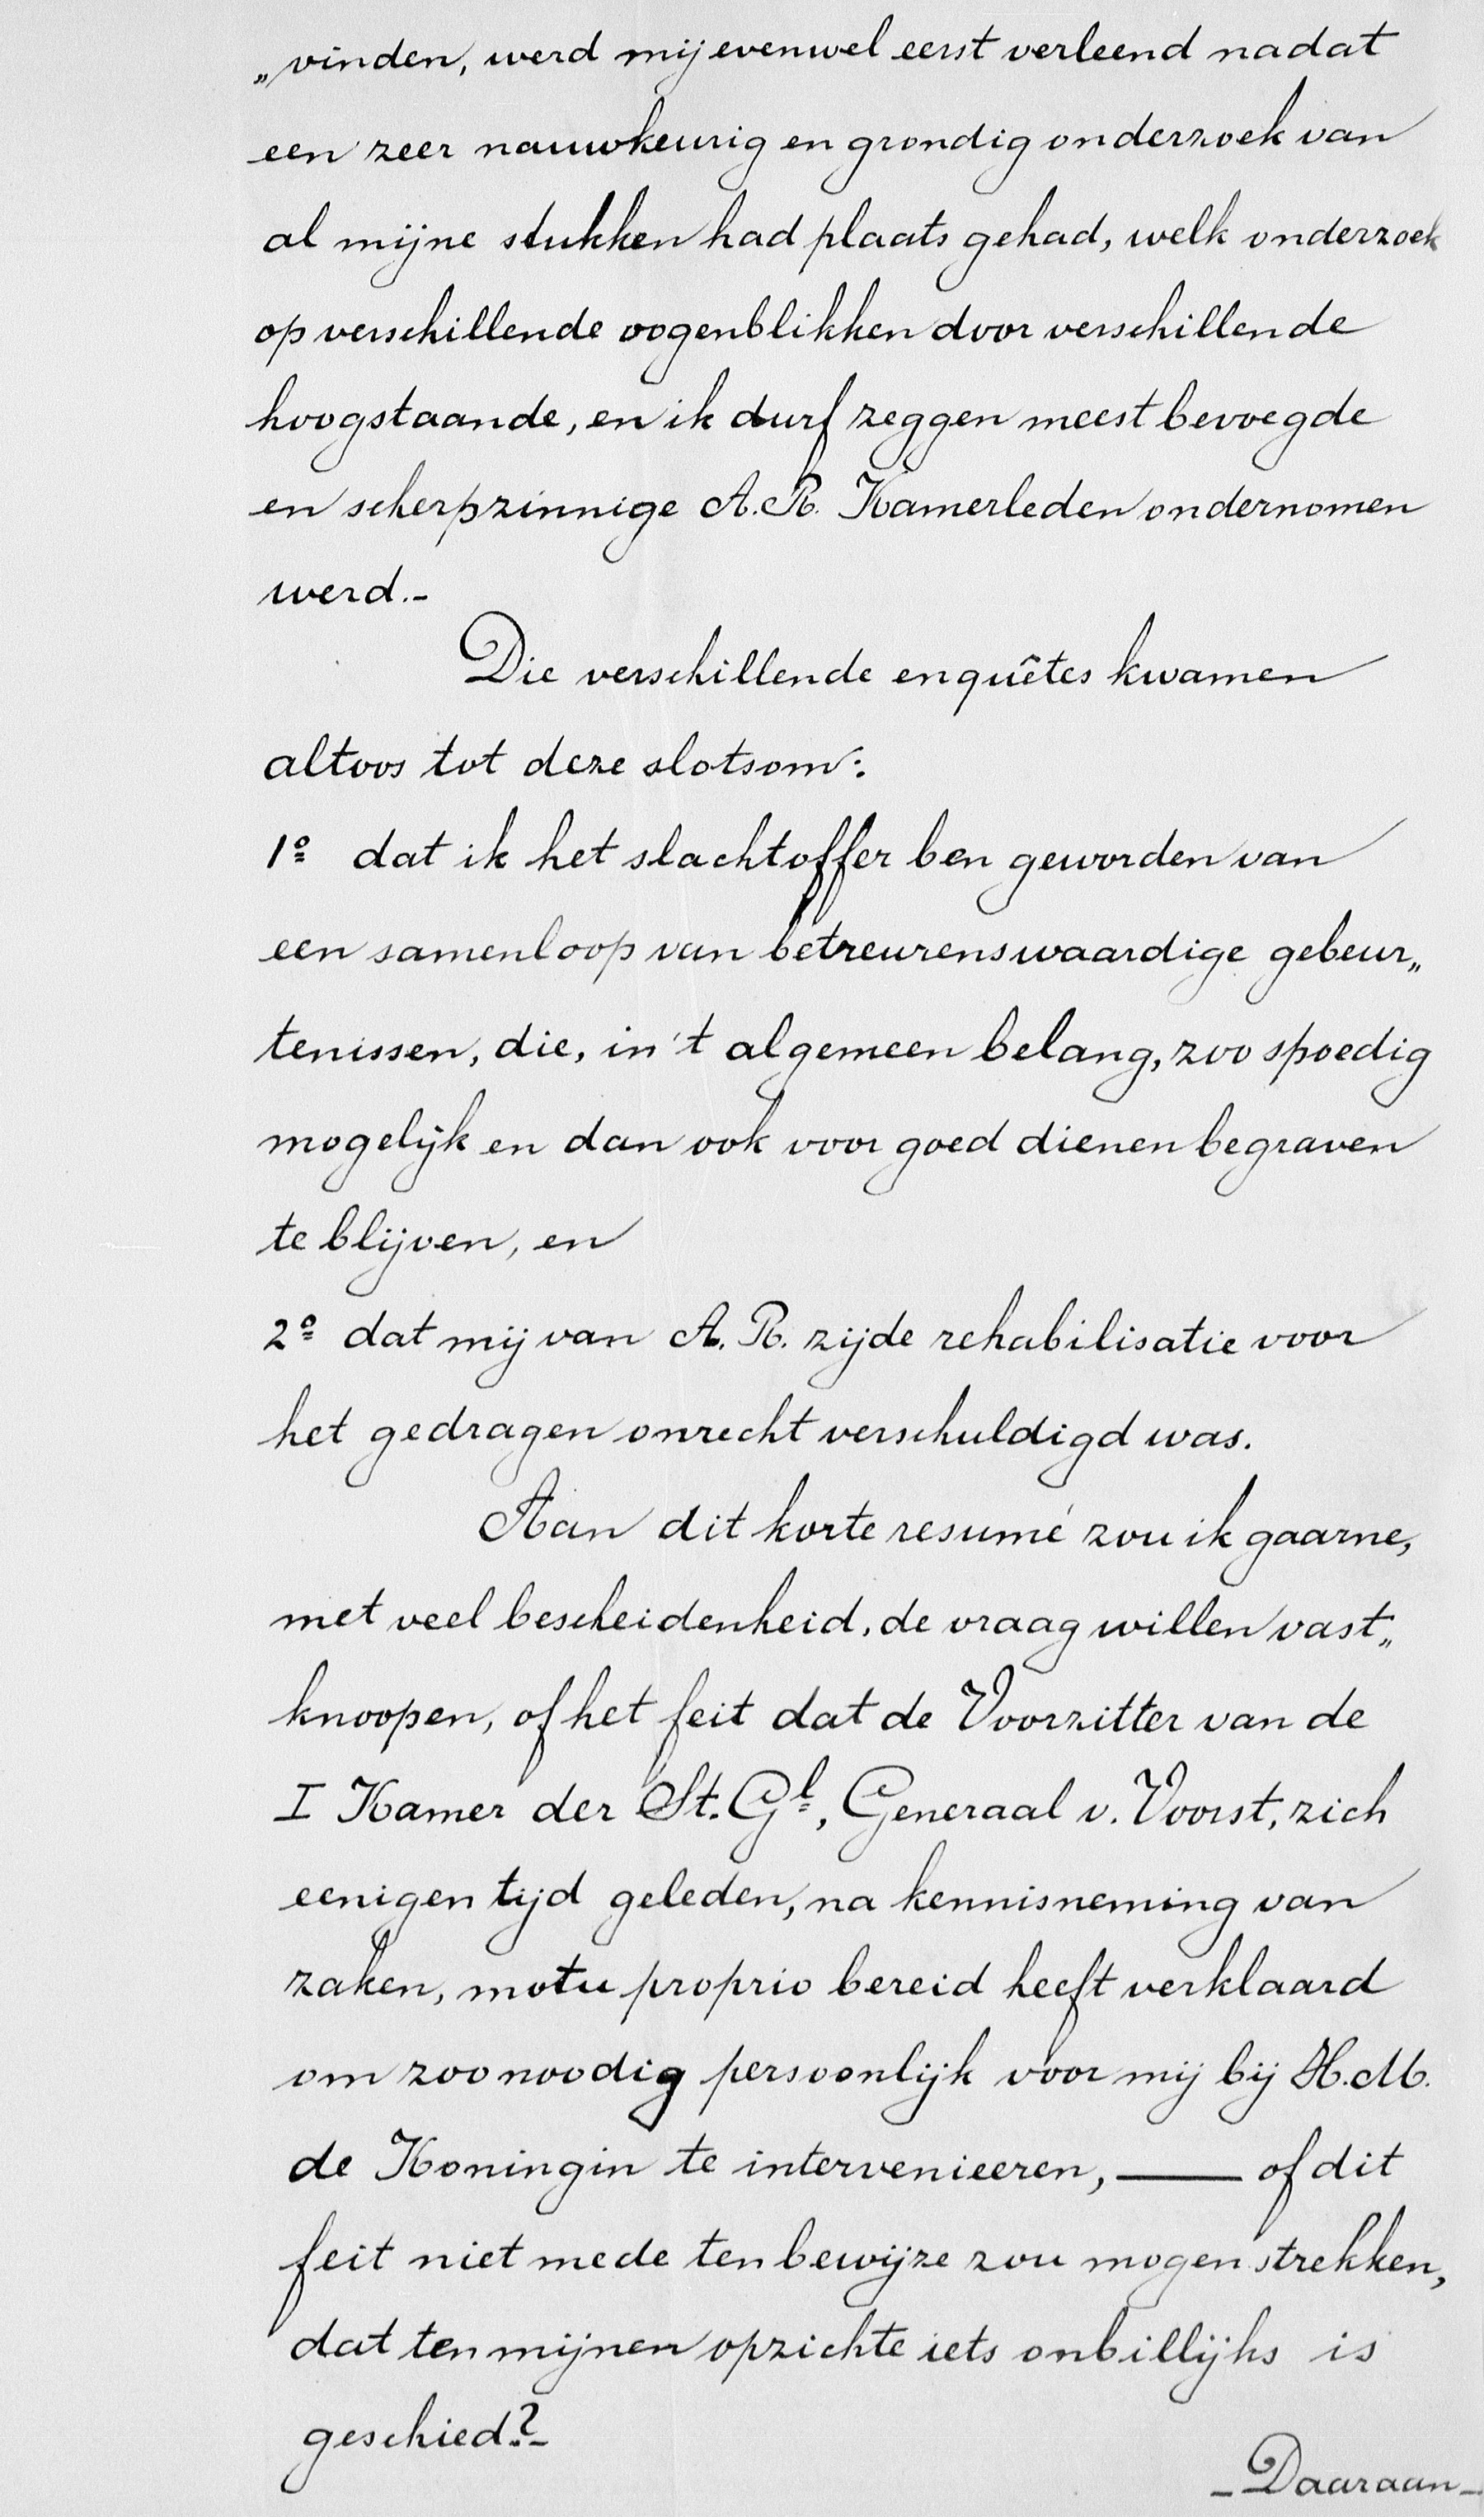 „vinden, werd mij evenwel eerst verleend nadat
een zeer nauwkeurig en grondig onderzoek van
al mijne stukken had plaats gehad, welk onderzoek
op verschillende oogenblikken door verschillende
hoogstaande, en ik durf zeggen meest bevoegde
en scherpzinnige A.R. Kamerleden ondernomen
werd.-
Die verschillende enquêtes kwamen
altoos tot deze slotsom:
1º dat ik het slachtoffer ben geworden van
een samenloop van betreurenswaardige gebeur„
tenissen, die, in 't algemeen belang, zoo spoedig
mogelijk en dan ook voor goed dienen begraven
te blijven, en
2º dat mij van A.R. zijde rehabilisatie voor
het gedragen onrecht verschuldigd was.
Aan dit korte resumé zou ik gaarne,
met veel bescheidenheid, de vraag willen vast„
knoopen, of het feit dat de Voorzitter van de
I Kamer der St. Gl, Generaal v. Voorst, zich
eenigen tijd geleden, na kennisneming van
zaken, motu proprio bereid heeft verklaard
om zoo noodig persoonlijk voor mij bij H.M.
de Koningin te intervenieeren, —— of dit
feit niet mede ten bewijze zou mogen strekken,
dat ten mijnen opzichte iets onbillijks is
geschied?-
-Daaraan-